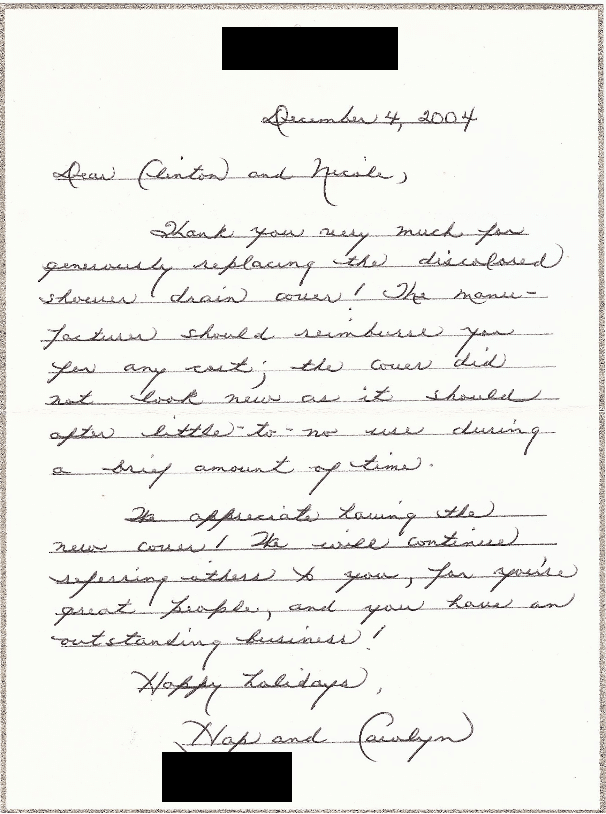 December 4, 2004
Dear Clinton and Nicole,
Thank you very much for
generously replacing the discolored
shower drain cover! The manu-
facturer should reimburse you
for any cost; the cover did
not look new as it should
after little-to-no use during
a brief amount of time.
We appreciate having the
new cover! We will continue
referring others to you, for you're
great people, and you have an
outstanding business!
Happy holidays,
Hap and Carolyn